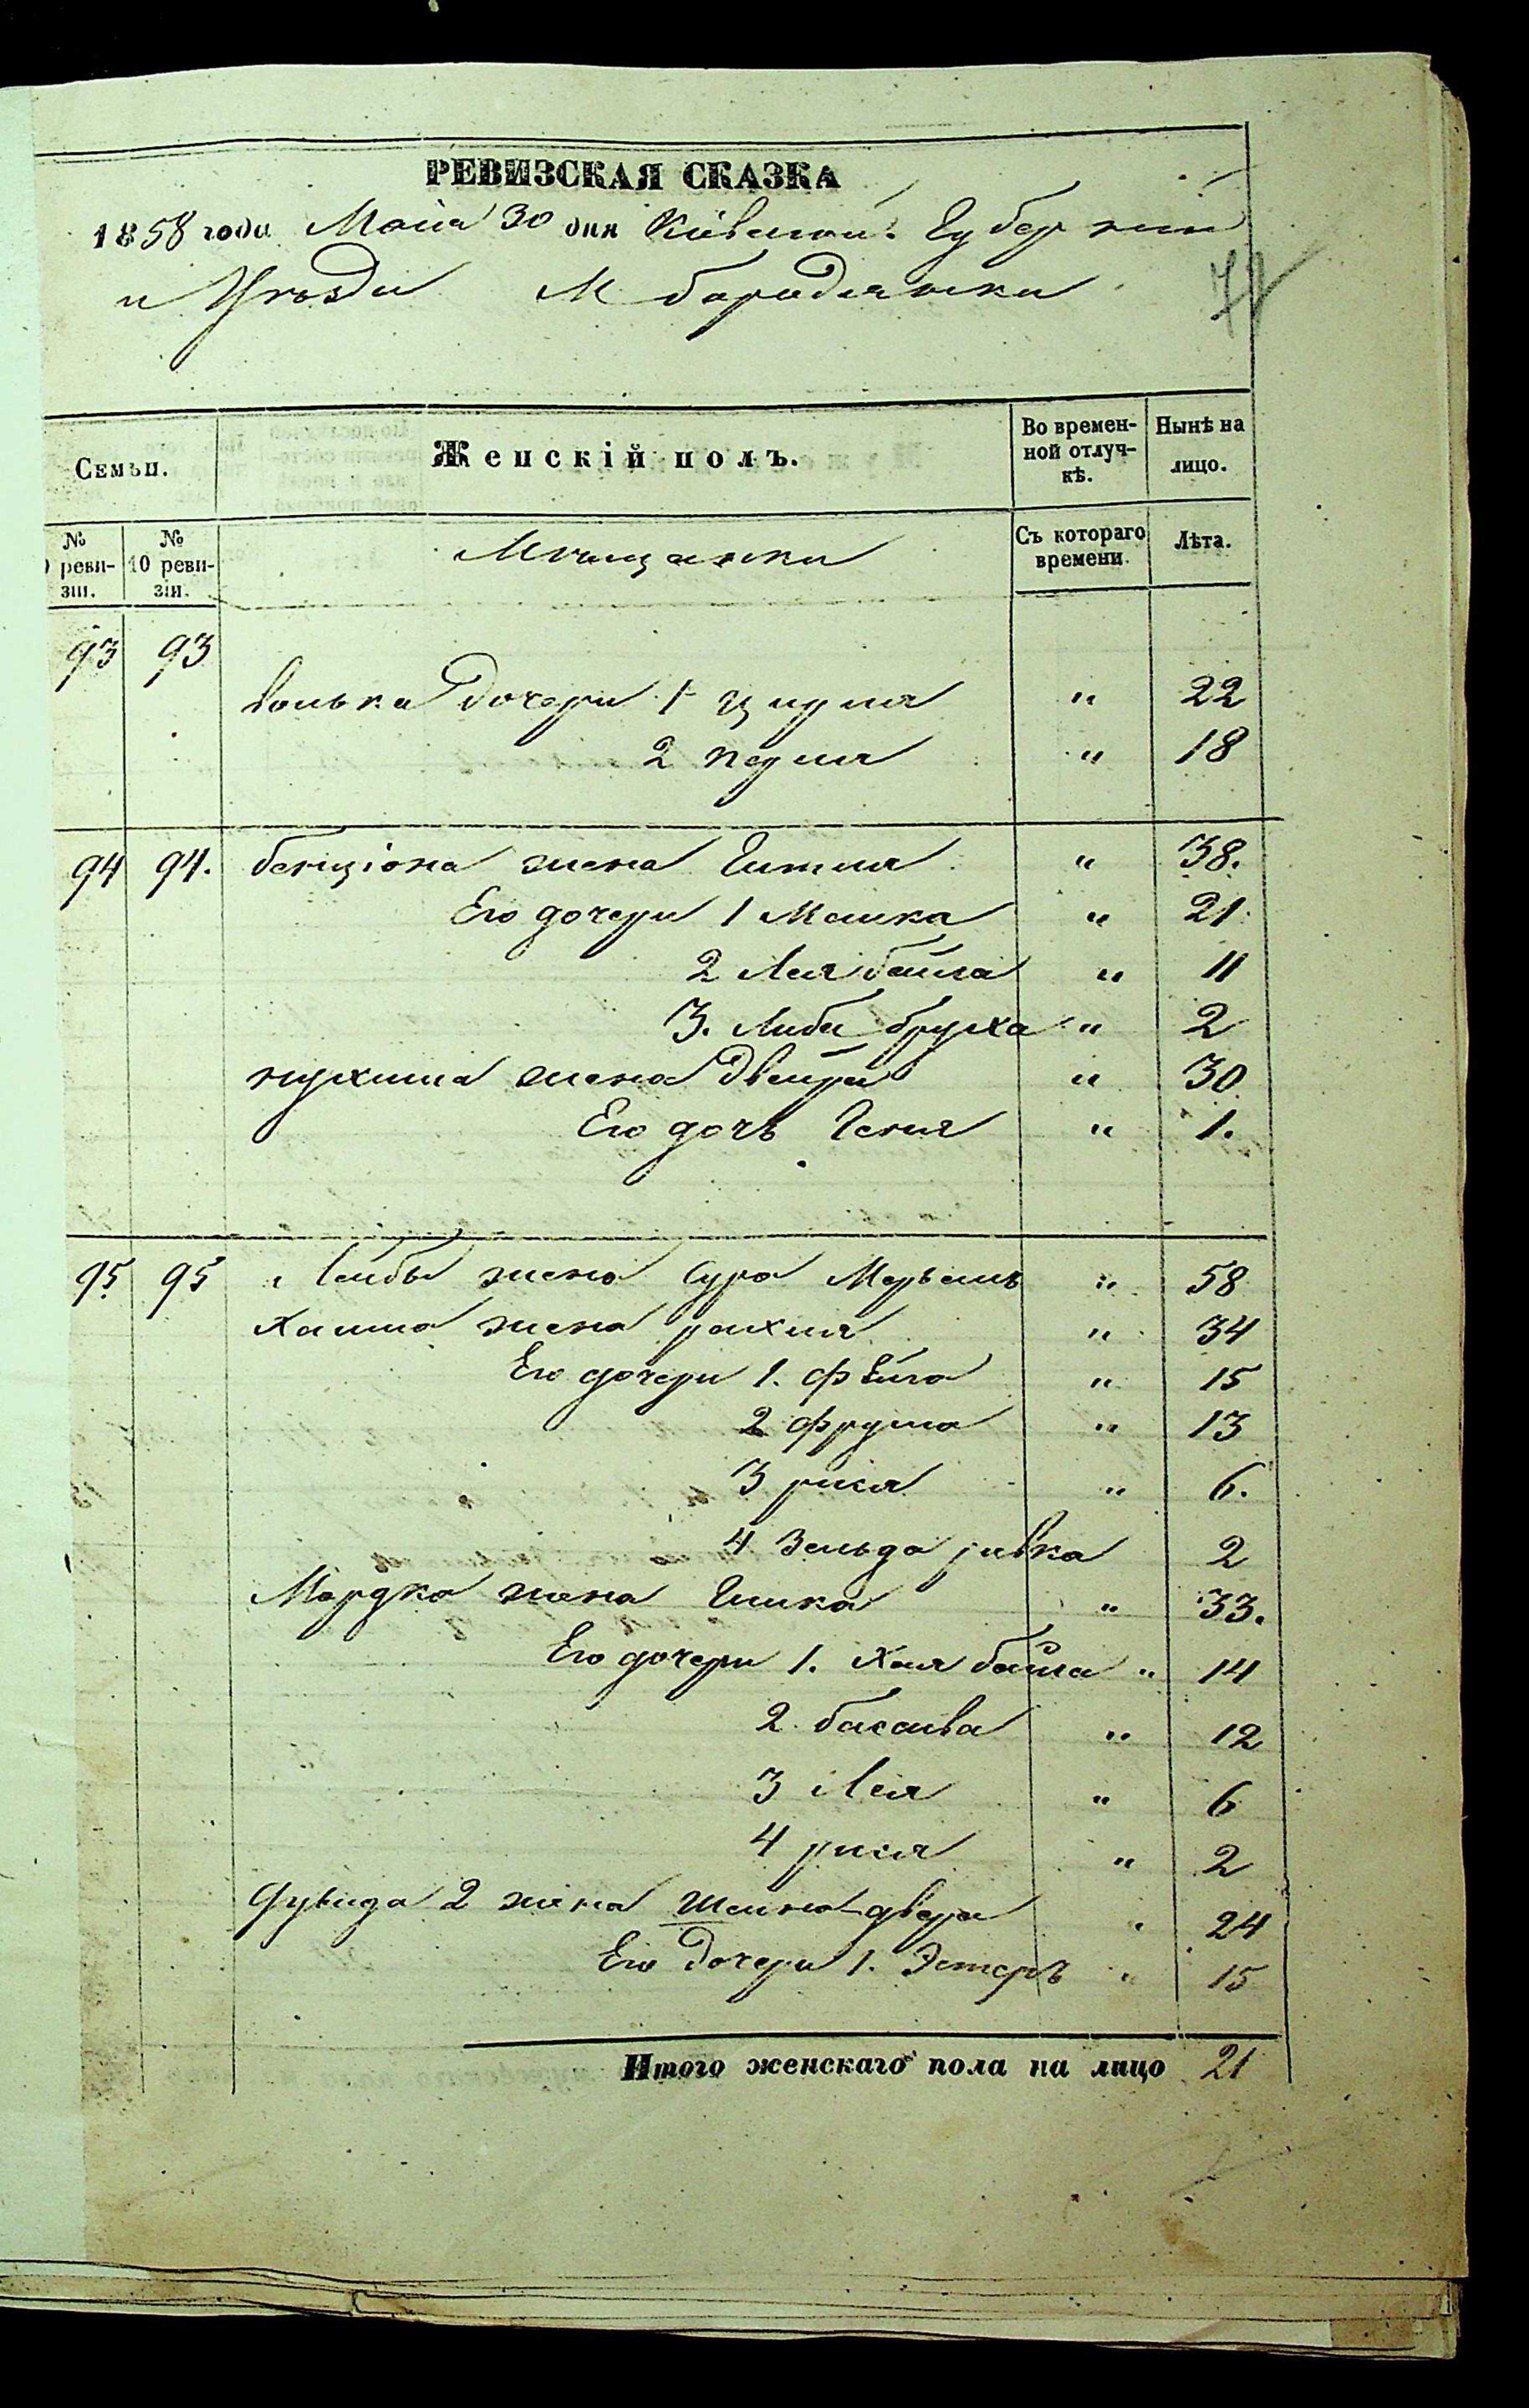 РЕВИЗСКАЯ СКАЗКА
1858 года Маiя 30 дня Кiевской Губернiи
и Уѣзда М бородянки
72
Семьи.
Женскiй полъ.
Во времен-
ной отлуч-
кѣ.
Нынѣ на
лицо.
№
реви-
зiи.
№
10 реви-
зiи.
Мѣщанки
Съ котораго
времени.
Лѣта.
93 93
волька дочери 1 " 22
2 " 18
94 94. бенцiона жена Гитля " 38.
Его дочери 1 Малка " 21
2 Лея бейла " 11
3. Либа бруха " 2
нухима жена двейра " 30
Его дочь Геня " 1.
95 95 Лейбы жена Сура Марьямъ " 58
Хаима жена рахля " 34
Его дочери 1. фейга " 15
2 фрума " 13
3 рися " 6.
4 Зельда ривка 2
Мордка жена Гишка " 33.
Его дочери 1. Хая бейла " 14
2. басшва " 12
3 Лея " 6
4 рися " 2
дувида 2 жена Шейна двера " 24
Его дочери 1. Эстеръ " 15
Итого женскаго пола на лицо 21